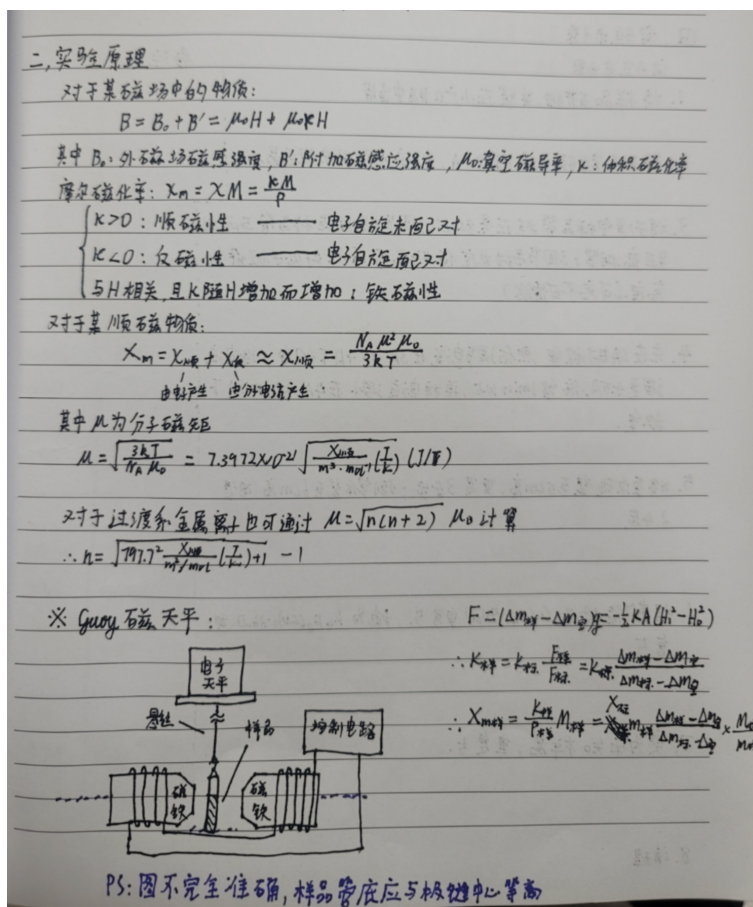 二、实验原理
对于某磁场中的物质:
B = B₀ + B' = μ₀H + μ₀κH
其中 B₀: 外磁场磁感强度, B': 附加磁感应强度, μ₀: 真空磁导率, κ: 体积磁化率
摩尔磁化率: χm = χM = κM/ρ
κ>0: 顺磁性 —— 电子自旋未配对
κ<0: 反磁性 —— 电子自旋配对
与H相关, 且κ随H增加而增加: 铁磁性
对于某顺磁物质:
χm = χ顺 + χ反 ≈ χ顺 = N_A μ² μ₀ / 3kT
由
其中μ为分子磁矩
μ = √(3kT / N_A μ₀) = 7.3972×10⁻²¹ √(χ顺 / m³·mol⁻¹ (T/K)) (J/T)
对于过渡系金属离子也可通过 μ = √n(n+2) μ₀ 计算
∴ n = √(797.7² χ顺 / m³/mol (T/K) + 1) − 1
※ Guoy 磁天平:
F = (Δm样 − Δm空)g = −½κA(H₁² − H₀²)
∴ κ样 = κ标 F样/F标 = κ标 (Δm样 − Δm空)/(Δm标 − Δm空)
∴ χm样 = κ样/ρ样 M样 = χ标 m标 (Δm样 − Δm空)/(Δm标 − Δ空) ×
电子天平
悬丝
样品
控制电路
磁铁
磁铁
PS: 图不完全准确, 样品管底应与极缝中心等高